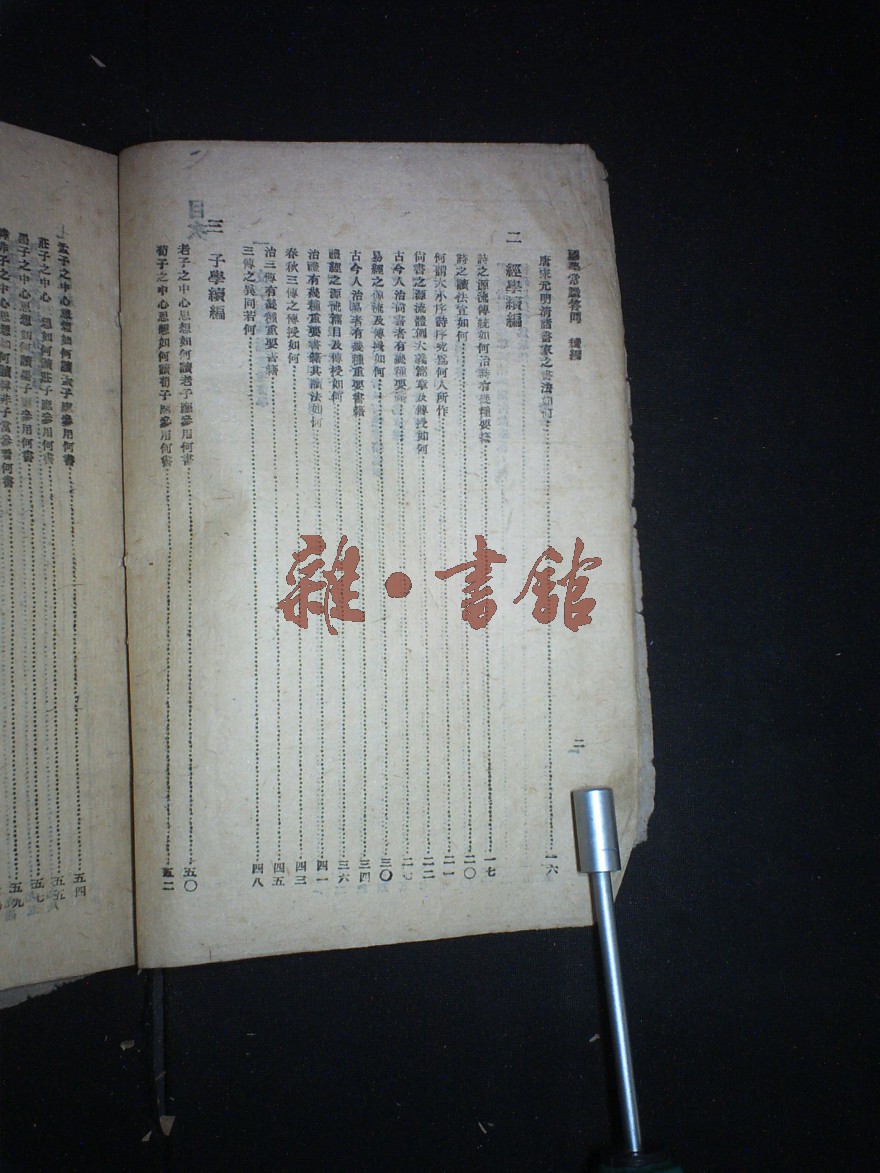 國學常識答問 續編
二
唐宋元明清諸書家之書法如何 一六
二 經學續編
詩之源流傳統如何治詩有幾種要籍 一七
詩之讀法宜如何 二〇
何謂大小序詩序究爲何人所作 二一
尙書之源流體例大義篇章及傳授如何 二二
古今人治尙書者有幾種要籍 二七
易經之源流及傳授如何 三〇
古今人治易者有幾種重要書籍 三四
禮經之源流篇目及傳授如何 三六
治禮有幾種重要書籍其讀法如何 四一
春秋三傳之傳授如何 四三
治三傳有幾種重要書籍 四五
三傳之異同若何 四八
三 子學續編
老子之中心思想如何讀老子應參用何書 五〇
荀子之中心思想如何讀荀子應參用何書 五二
孟子之中心思想如何讀孟子應參用何書 五四
莊子之中心思想如何讀莊子應參用何書 五五
墨子之中心思想如何讀墨子應參用何書 五七
韓非子之中心思想如何讀韓非子當參看何書 五九
雜·書館